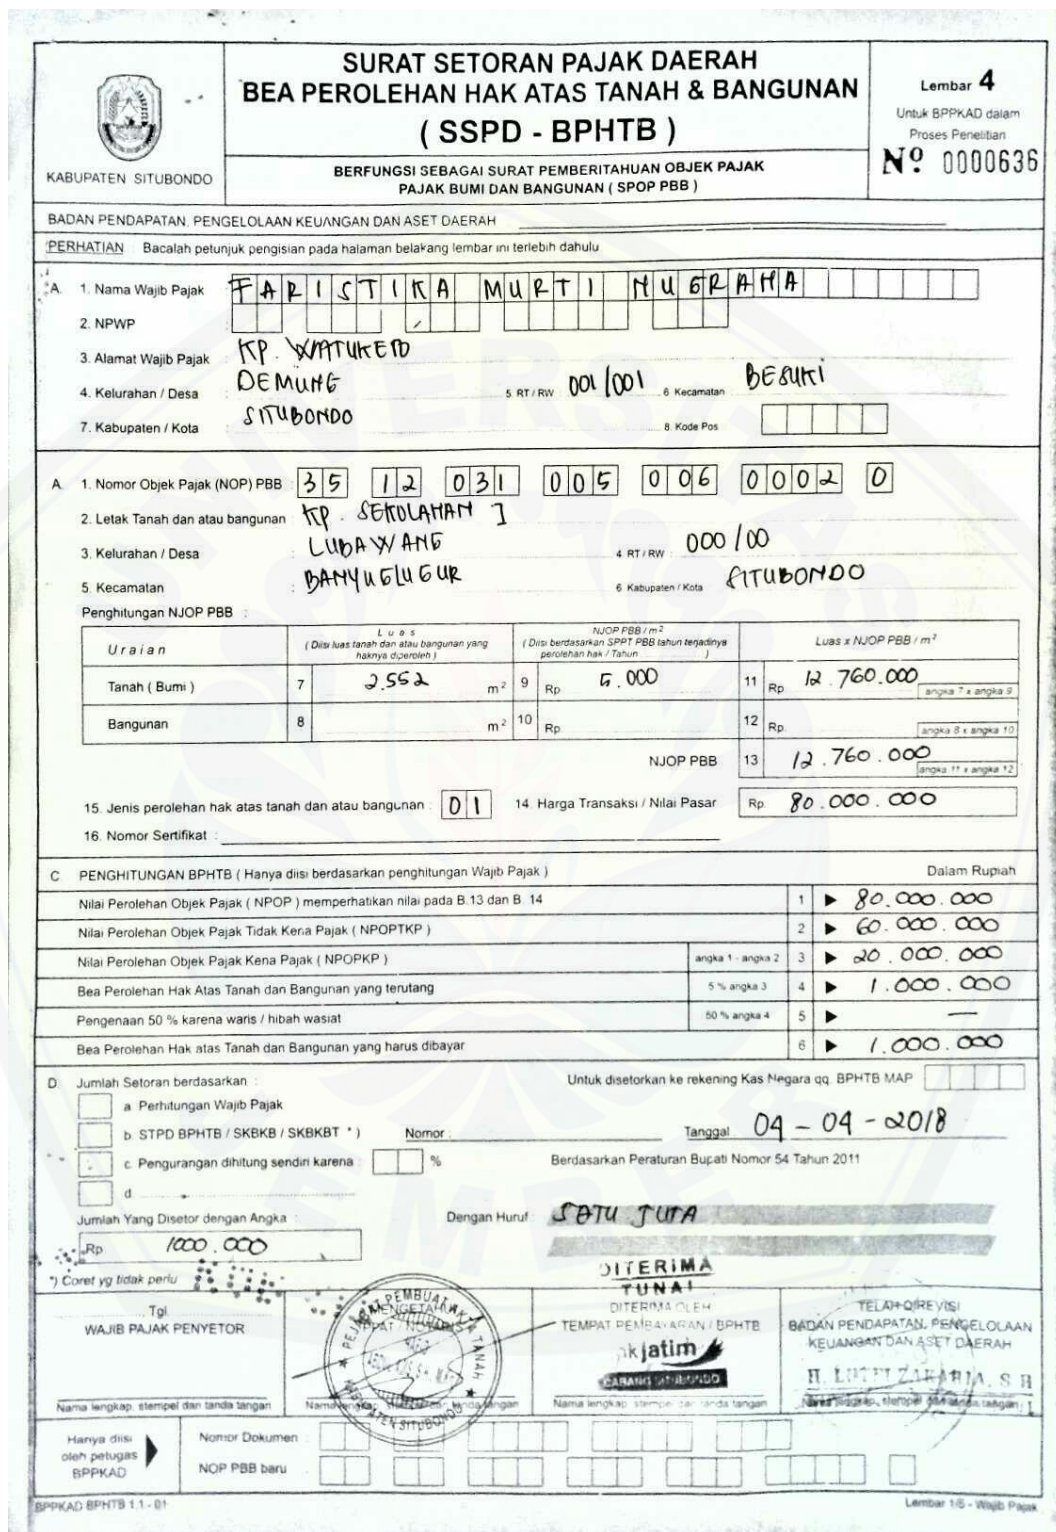 SURAT SETORAN PAJAK DAERAH
BEA PEROLEHAN HAK ATAS TANAH & BANGUNAN
( SSPD - BPHTB )
BERFUNGSI SEBAGAI SURAT PEMBERITAHUAN OBJEK PAJAK
PAJAK BUMI DAN BANGUNAN ( SPOP PBB )
KABUPATEN SITUBONDO
Lembar 4
Untuk BPPKAD dalam
Proses Penelitian
Nº 0000636
BADAN PENDAPATAN, PENGELOLAAN KEUANGAN DAN ASET DAERAH
PERHATIAN : Bacalah petunjuk pengisian pada halaman belakang lembar ini terlebih dahulu
A. 1. Nama Wajib Pajak FARISTIKA MURTI NUGRAHA
2. NPWP
3. Alamat Wajib Pajak KP. WATUKEBO
4. Kelurahan / Desa : DEMUNG 5. RT / RW 001/001 6. Kecamatan BESUKI
7. Kabupaten / Kota : SITUBONDO 8. Kode Pos
A. 1. Nomor Objek Pajak (NOP) PBB : 35 12 031 005 006 0002 0
2. Letak Tanah dan atau bangunan KP. SEKOLAHAN I
3. Kelurahan / Desa : LUBAWANG 4. RT / RW : 000/00
5. Kecamatan : BANYUGLUGUR 6. Kabupaten / Kota SITUBONDO
Penghitungan NJOP PBB :
Uraian
Luas
( Diisi luas tanah dan atau bangunan yang
haknya diperoleh )
NJOP PBB / m²
( Diisi berdasarkan SPPT PBB tahun terjadinya
perolehan hak / Tahun )
Luas x NJOP PBB / m²
Tanah ( Bumi ) 7 2.552 m² 9 Rp 5.000 11 Rp 12.760.000
angka 7 x angka 9
Bangunan 8 m² 10 Rp 12 Rp.
angka 8 x angka 10
NJOP PBB 13 12.760.000
angka 11 x angka 12
15. Jenis perolehan hak atas tanah dan atau bangunan : 01 14. Harga Transaksi / Nilai Pasar Rp. 80.000.000
16. Nomor Sertifikat :
C PENGHITUNGAN BPHTB ( Hanya diisi berdasarkan penghitungan Wajib Pajak ) Dalam Rupiah
Nilai Perolehan Objek Pajak ( NPOP ) memperhatikan nilai pada B.13 dan B. 14 1 ▶ 80.000.000
Nilai Perolehan Objek Pajak Tidak Kena Pajak ( NPOPTKP ) 2 ▶ 60.000.000
Nilai Perolehan Objek Pajak Kena Pajak ( NPOPKP ) angka 1 - angka 2 3 ▶ 20.000.000
Bea Perolehan Hak Atas Tanah dan Bangunan yang terutang 5 % angka 3 4 ▶ 1.000.000
Pengenaan 50 % karena waris / hibah wasiat 50 % angka 4 5 ▶ —
Bea Perolehan Hak atas Tanah dan Bangunan yang harus dibayar 6 ▶ 1.000.000
D. Jumlah Setoran berdasarkan : Untuk disetorkan ke rekening Kas Negara qq. BPHTB MAP
a. Perhitungan Wajib Pajak
b. STPD BPHTB / SKBKB / SKBKBT *) Nomor : Tanggal 04 - 04 - 2018
c. Pengurangan dihitung sendiri karena : % Berdasarkan Peraturan Bupati Nomor 54 Tahun 2011
d.
Jumlah Yang Disetor dengan Angka : Dengan Huruf : SATU JUTA
Rp 1000.000
*) Coret yg tidak perlu
DITERIMA
TUNAI
Tgl.
WAJIB PAJAK PENYETOR
MENGETAHUI
PPAT / NOTARIS
PEJABAT PEMBUAT AKTA TANAH
KABUPATEN SITUBONDO
DITERIMA OLEH
TEMPAT PEMBAYARAN / BPHTB
jatim
CABANG SITUBONDO
TELAH DIREVISI
BADAN PENDAPATAN, PENGELOLAAN
KEUANGAN DAN ASET DAERAH
H. LUTFI ZAKARIA, S.H
Nama lengkap, stempel dan tanda tangan
Nama lengkap, stempel dan tanda tangan
Nama lengkap, stempel dan tanda tangan
Nama lengkap, stempel dan tanda tangan
Hanya diisi
oleh petugas
BPPKAD
Nomor Dokumen :
NOP PBB baru :
BPPKAD BPHTB 1.1 - 01
Lembar 1/5 - Wajib Pajak